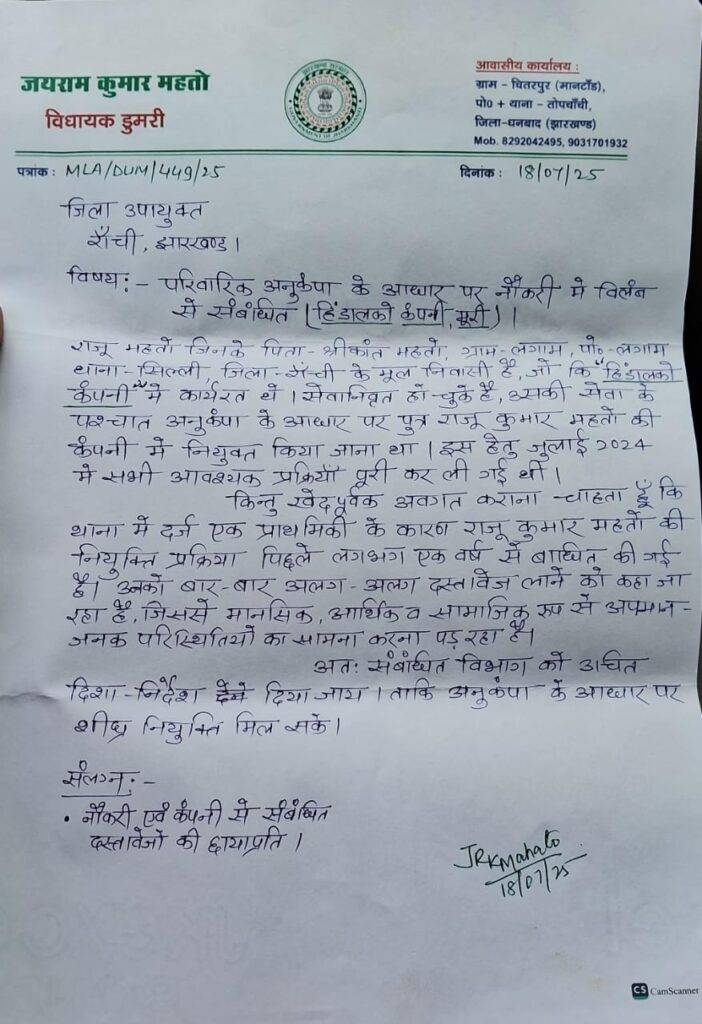 जयराम कुमार महतो
विधायक डुमरी
आवासीय कार्यालय :
ग्राम - चितरपुर (मानटाँड़),
पो० + थाना - तोपचाँची,
जिला-धनबाद (झारखण्ड)
Mob. 8292042495, 9031701932
पत्रांक : MLA/DUM/449/25
दिनांक : 18/07/25
जिला उपायुक्त
राँची, झारखण्ड।
विषय:- परिवारिक अनुकंपा के आधार पर नौकरी मे विलंब
से संबंधित (हिंडालको कंपनी, मूरी)।
राजू महतो जिनके पिता - श्रीकांत महतो, ग्राम - लगाम, पो० - लगाम
थाना - सिल्ली, जिला - राँची के मूल निवासी है, जो कि "हिंडालको
कंपनी" मे कार्यरत थे। सेवानिवृत हो चुके है, उसकी सेवा के
पश्चात अनुकंपा के आधार पर पुत्र राजू कुमार महतो की
कंपनी मे नियुक्त किया जाना था। इस हेतु जुलाई 2024
मे सभी आवश्यक प्रक्रियाँ पूरी कर ली गई थी।
किन्तु खेदपूर्वक अवगत कराना चाहता हूँ कि
थाना मे दर्ज एक प्राथमिकी के कारण राजू कुमार महतो की
नियुक्ति प्रक्रिया पिछले लगभग एक वर्ष से बाधित की गई
है। उनको बार-बार अलग-अलग दस्तावेज लाने को कहा जा
रहा है, जिससे मानसिक, आर्थिक व सामाजिक रुप से अपमान-
जनक परिस्थितियों का सामना करना पड़ रहा है।
अतः संबंधित विभाग को उचित
दिशा-निर्देश दिया जाय। ताकि अनुकंपा के आधार पर
शीघ्र नियुक्ति मिल सके।
संलग्न:-
• नौकरी एवं कंपनी से संबंधित
दस्तावेजो की छायाप्रति।
JRKMahato
18/07/25
CS CamScanner